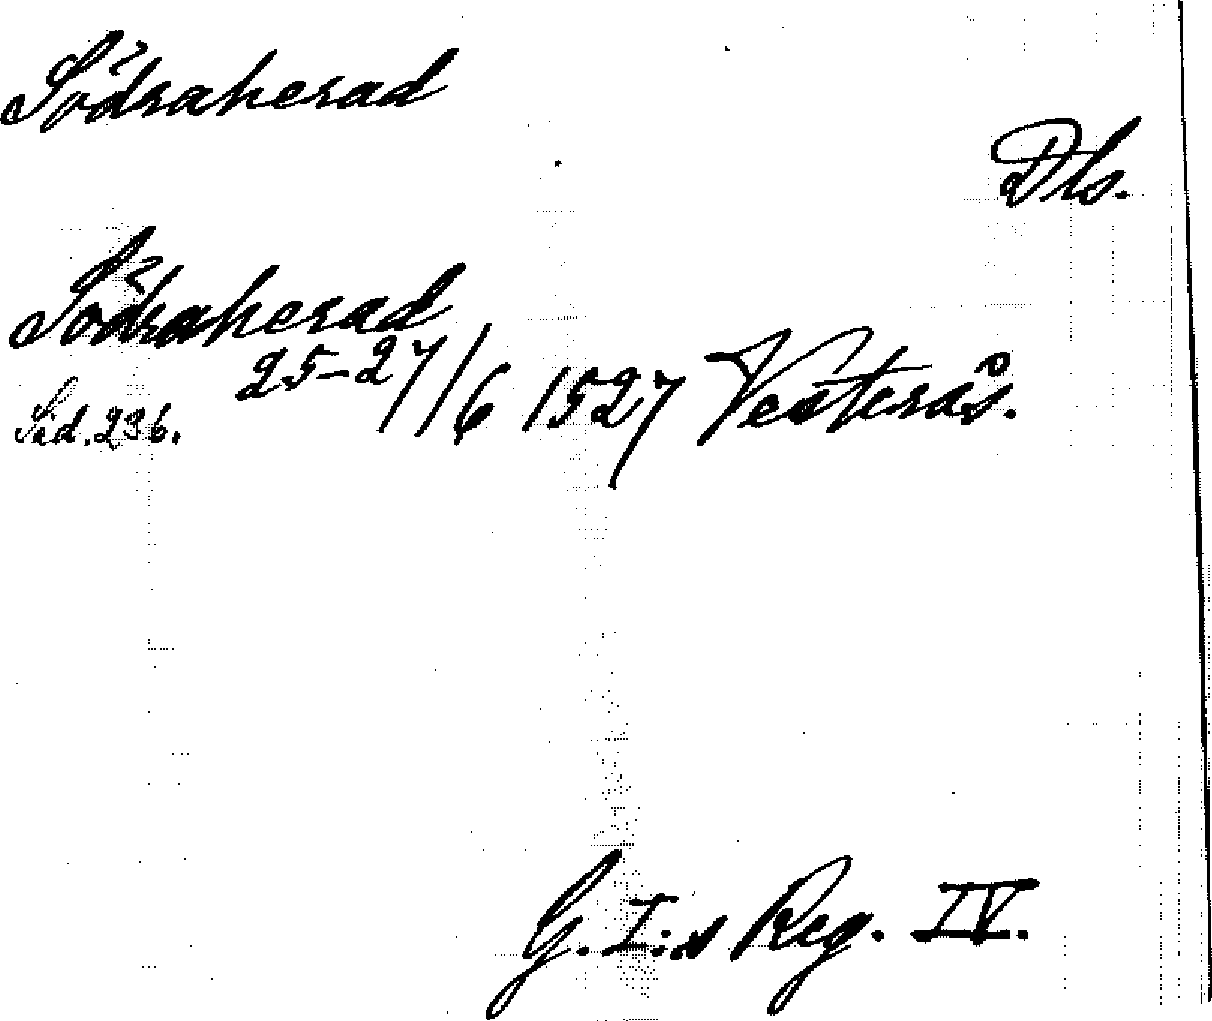 Södraherad
Dls.
Södraherad
25-27/6 1527 Vesterås.
Sid. 236.
G. I:s Reg. IV.